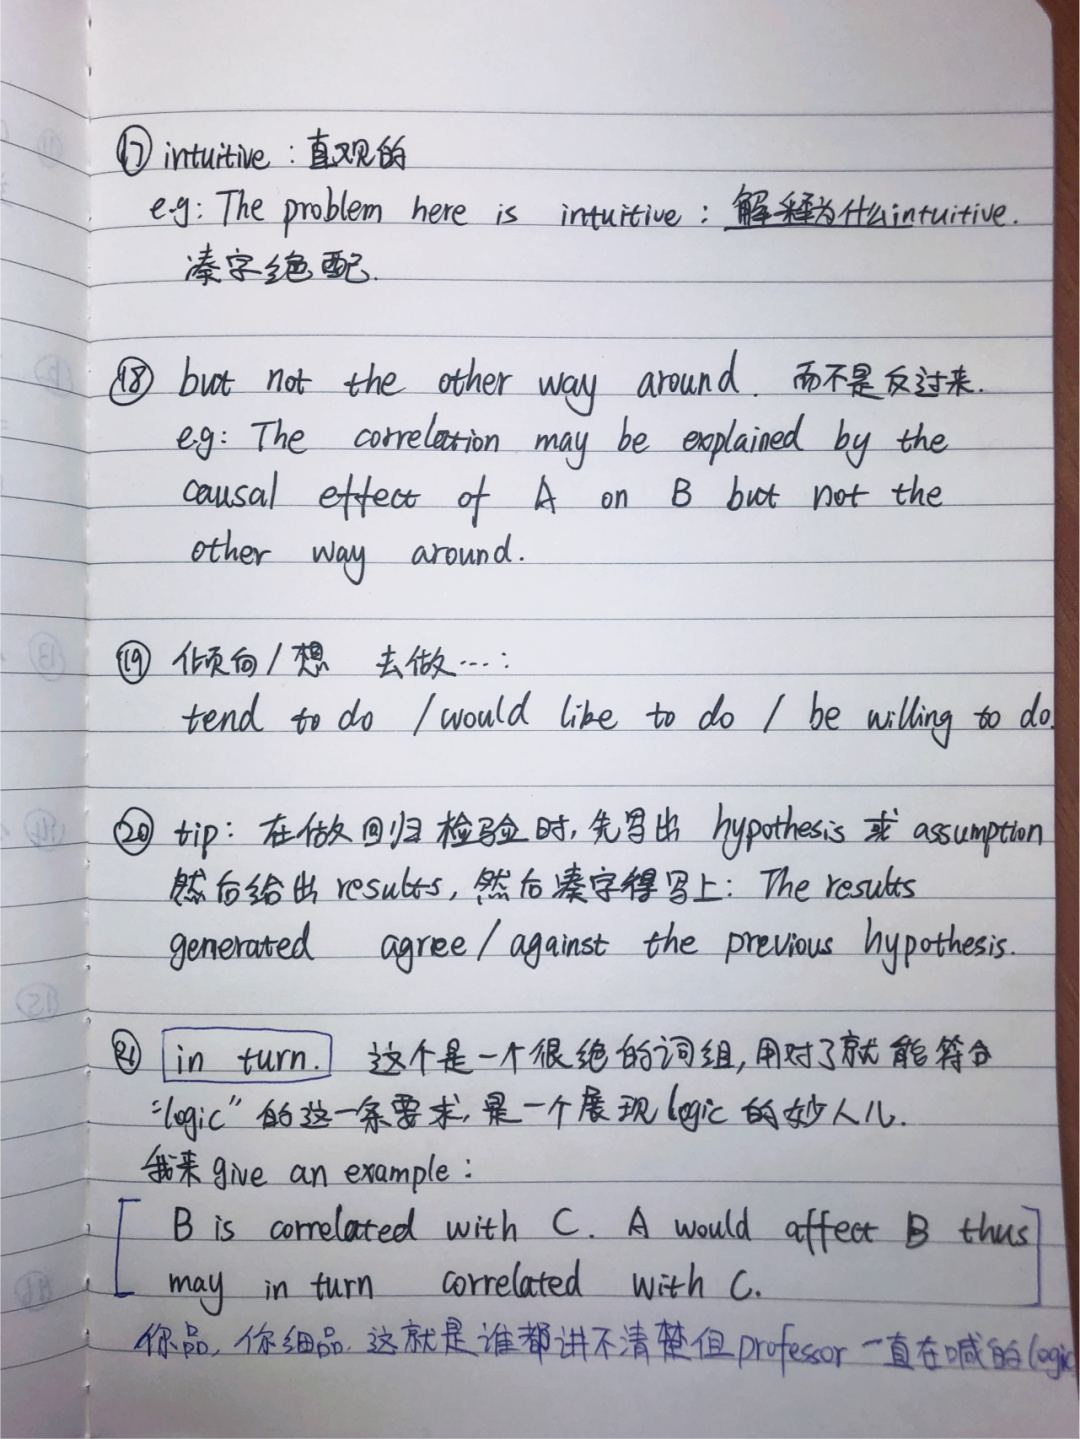 ⑰ intuitive : 直观的
e.g: The problem here is intuitive : 解释为什么intuitive.
凑字绝配.
⑱ but not the other way around. 而不是反过来.
e.g: The correlation may be explained by the
causal effect of A on B but not the
other way around.
⑲ 倾向/想 去做…:
tend to do /would like to do / be willing to do.
⑳ tip: 在做回归检验时,先写出 hypothesis 或 assumption
然后给出 results, 然后凑字得写上: The results
generated agree/against the previous hypothesis.
㉑ in turn. 这个是一个很绝的词组,用对了就能符合
"logic"的这一条要求,是一个展现logic的妙人儿.
我来 give an example:
[ B is correlated with C. A would affect B thus
may in turn correlated with C. ]
你品,你细品,这就是谁都讲不清楚但professor一直在喊的logic